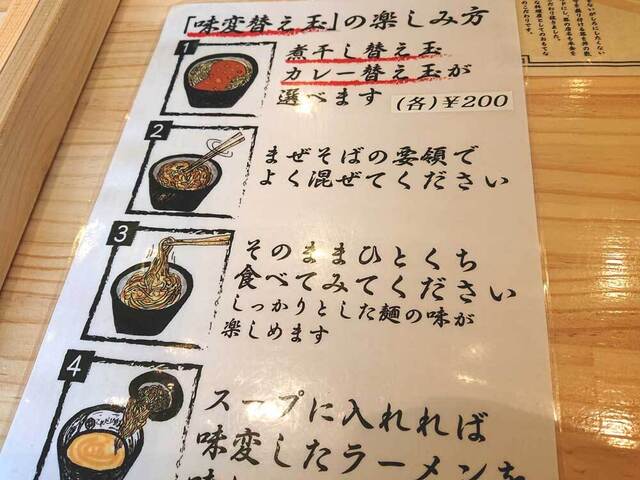 「味変替え玉」の楽しみ方
1
煮干し替え玉
カレー替え玉が
選べます (各)¥200
2
まぜそばの要領で
よく混ぜてください
3
そのままひとくち
食べてみてください
しっかりとした麺の味が
楽しめます
4
スープに入れれば
味変したラーメンを